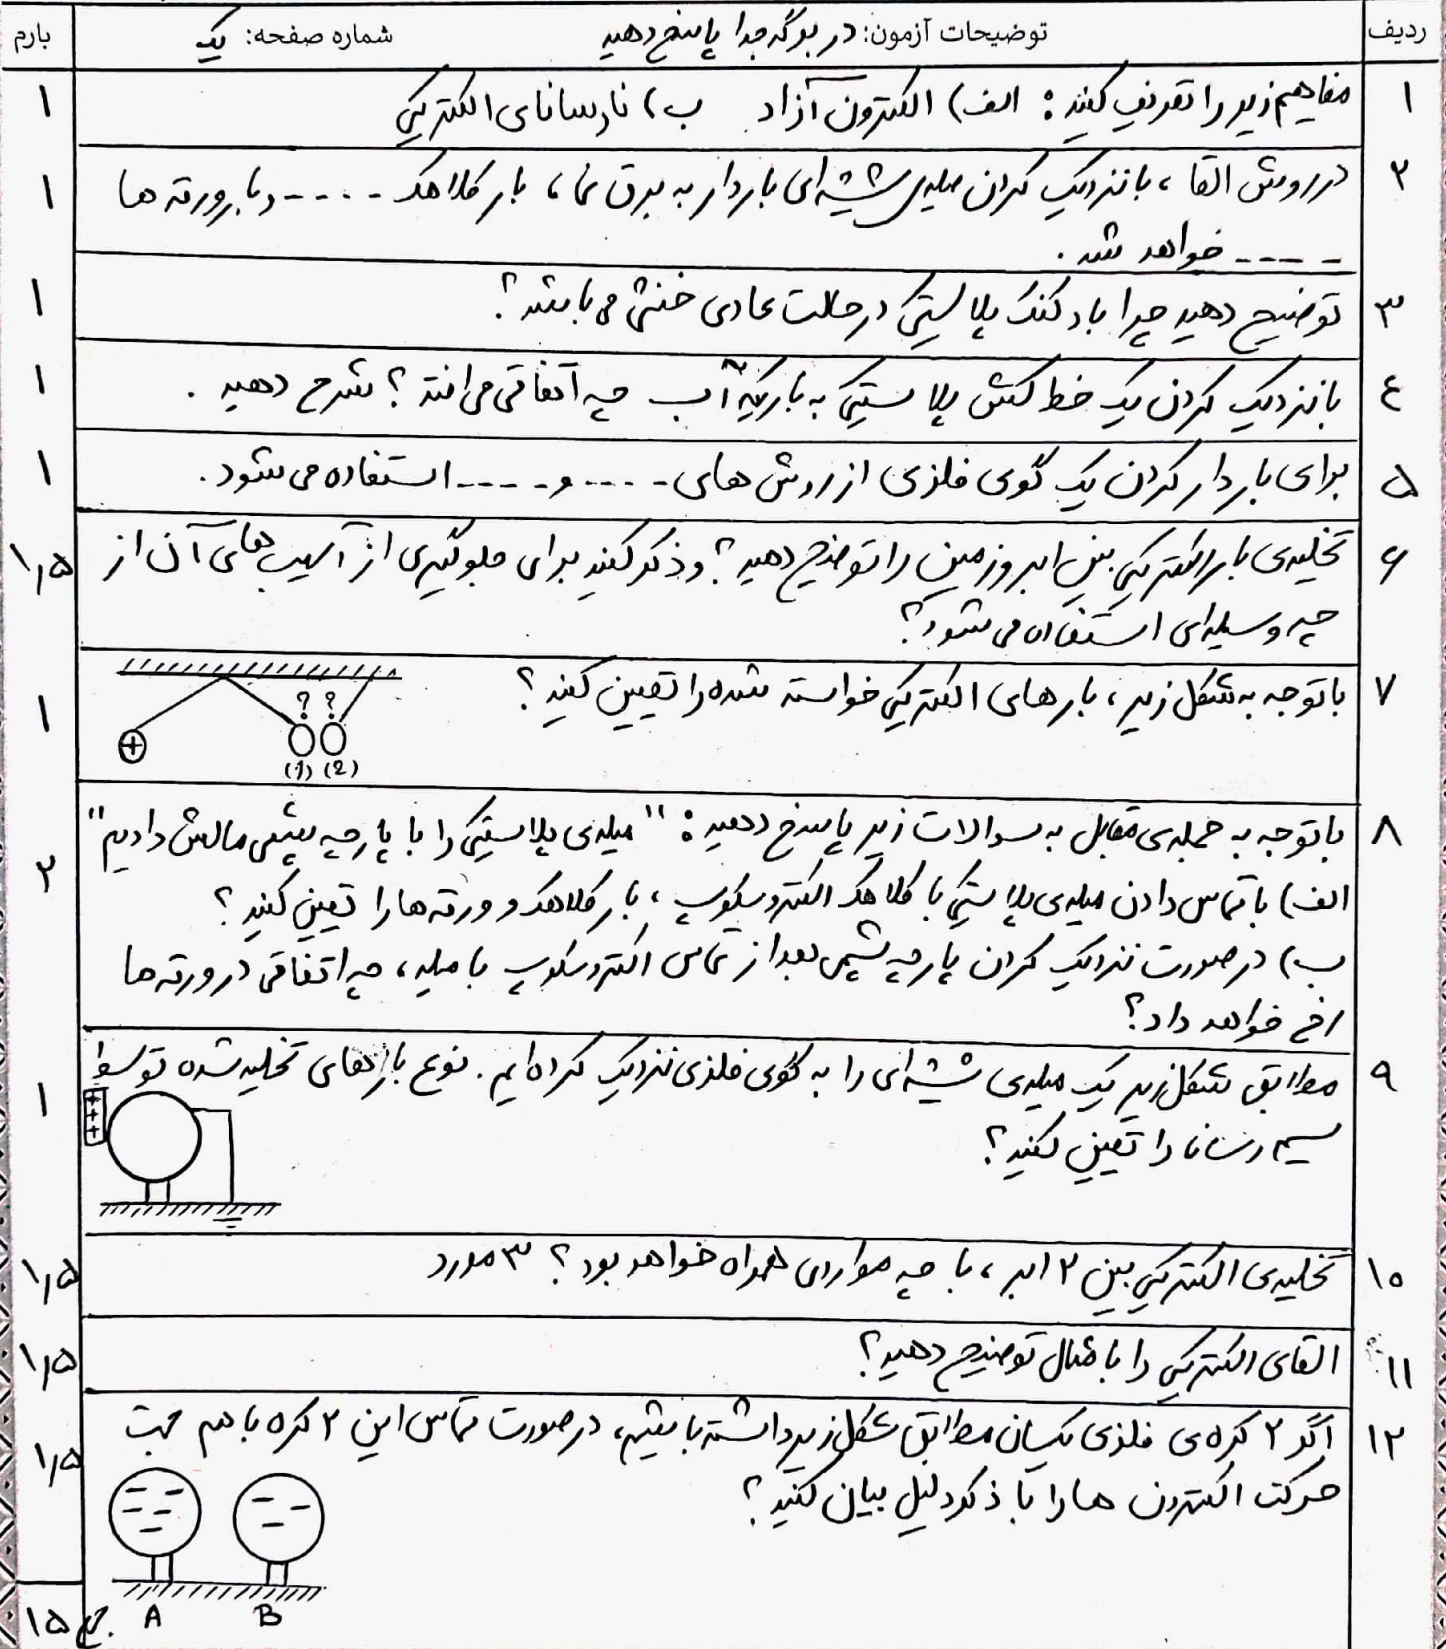 ردیف توضیحات آزمون: در برگه جدا پاسخ دهید شماره صفحه: یک بارم
۱ مفاهیم زیر را تعریف کنید: الف) الکترون آزاد ب) نارسانای الکتریکی ۱
۲ در روش القا، با نزدیک کردن میله‌ی شیشه‌ای باردار به برق نما، بار کلاهک ---- و بار ورقه ها ۱
---- خواهد شد.
۳ توضیح دهید چرا بادکنک پلاستیکی در حالت عادی خنثی می باشد؟ ۱
٤ با نزدیک کردن یک خط کش پلاستیکی به باریکه آب چه اتفاقی می افتد؟ شرح دهید. ۱
۵ برای باردار کردن یک گوی فلزی از روش های ---- و ---- استفاده می شود. ۱
۶ تخلیه‌ی بار الکتریکی بین ابر و زمین را توضیح دهید؟ و ذکر کنید برای جلوگیری از آسیب های آن از ۱,۵
چه وسیله‌ای استفاده می شود؟
۷ با توجه به شکل زیر، بارهای الکتریکی خواسته شده را تعیین کنید؟ ۱
+ ? ?
(1) (2)
۸ با توجه به جمله‌ی مقابل به سوالات زیر پاسخ دهید: "میله‌ی پلاستیکی را با پارچه پشمی مالش دادیم" ۲
الف) با تماس دادن میله‌ی پلاستیکی با کلاهک الکتروسکوپ، بار کلاهک و ورقه ها را تعیین کنید؟
ب) در صورت نزدیک کردن پارچه پشمی بعد از تماس الکتروسکوپ با میله، چه اتفاقی در ورقه ها
رخ خواهد داد؟
۹ مطابق شکل زیر یک میله‌ی شیشه‌ای را به گوی فلزی نزدیک کرده ایم. نوع بارهای تخلیه شده توسط ۱
سیم رسانا را تعیین کنید؟
+ + +
۱۰ تخلیه‌ی الکتریکی بین ۲ ابر، با چه مواردی همراه خواهد بود؟ ۳ مورد ۱,۵
۱۱ القای الکتریکی را با مثال توضیح دهید؟ ۱,۵
۱۲ اگر ۲ کره‌ی فلزی یکسان مطابق شکل زیر داشته باشیم، در صورت تماس این ۲ کره با هم جهت ۱,۵
حرکت الکترون ها را با ذکر دلیل بیان کنید؟
A B
ج ۱۵